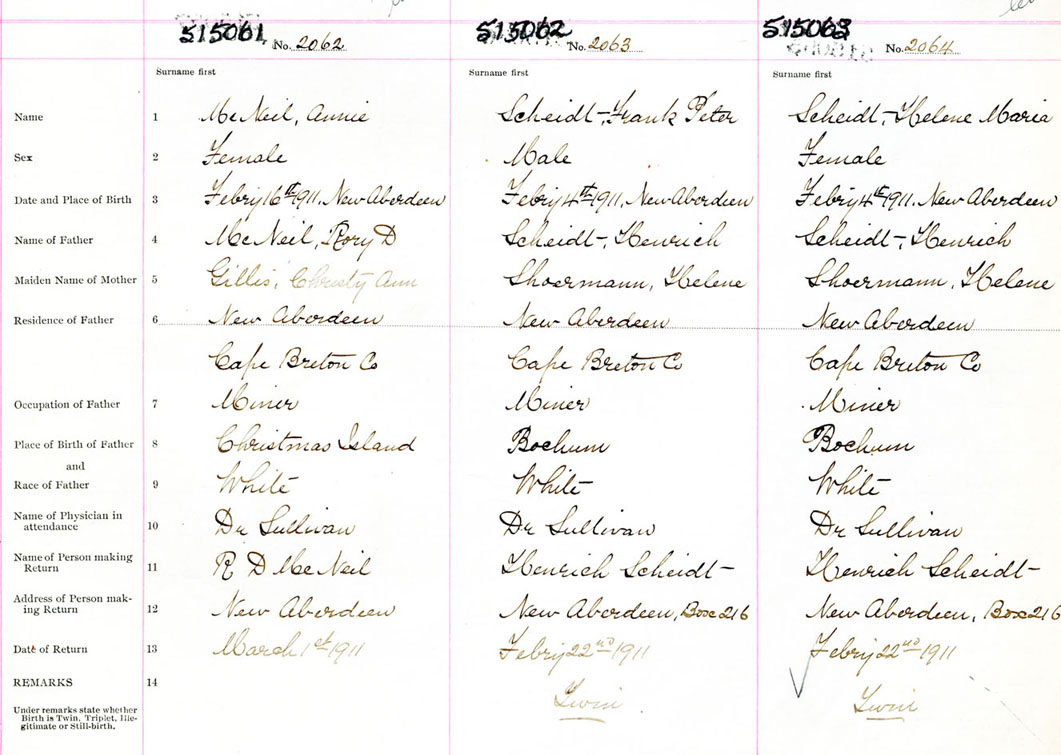 515061 No. 2062 515062 No. 2063 515063 No. 2064
Surname first Surname first Surname first
Name 1 McNeil, Annie Scheidt, Frank Peter Scheidt, Helene Maria
Sex 2 Female Male Female
Date and Place of Birth 3 Febry 16th 1911. New Aberdeen Febry 4th 1911. New Aberdeen Febry 4th 1911. New Aberdeen
Name of Father 4 McNeil, Rory D Scheidt, Henrich Scheidt, Henrich
Maiden Name of Mother 5 Gillis, Christy Ann Shoermann, Helene Shoermann, Helene
Residence of Father 6 New Aberdeen New Aberdeen New Aberdeen
Cape Breton Co Cape Breton Co Cape Breton Co
Occupation of Father 7 Miner Miner Miner
Place of Birth of Father 8 Christmas Island Bochum Bochum
and
Race of Father 9 White White White
Name of Physician in
attendance 10 Dr Sullivan Dr Sullivan Dr Sullivan
Name of Person making
Return 11 R D McNeil Henrich Scheidt Henrich Scheidt
Address of Person mak-
ing Return 12 New Aberdeen New Aberdeen, Box 216 New Aberdeen, Box 216
Date of Return 13 March 1st 1911 Febry 22nd 1911 Febry 22nd 1911
REMARKS 14
Twin Twin
Under remarks state whether
Birth is Twin, Triplet, Ille-
gitimate or Still-birth.